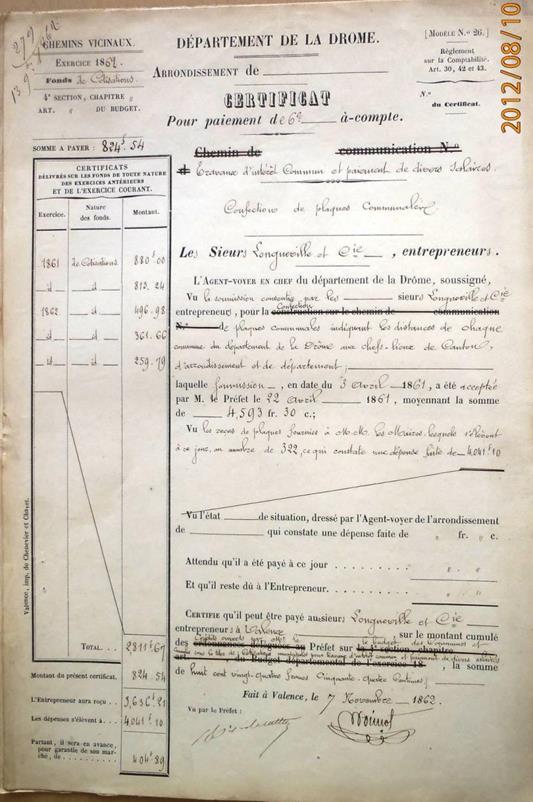 2012/08/10
279
CHEMINS VICINAUX.
EXERCICE 1862
Fonds de Cotisations.
4e SECTION, CHAPITRE "
ART. " DU BUDGET.
SOMME A PAYER : 824f 54
DÉPARTEMENT DE LA DROME.
ARRONDISSEMENT DE
CERTIFICAT
Pour paiement de 6e à-compte.
[MODÈLE N.o 26.]
Règlement
sur la Comptabilité.
Art. 30, 42 et 43.
N.o
du Certificat.
Chemin de communication N.o
Travaux d'intérêt Commun et paiement de divers Salaires.
Confection de plaques Communales
Les Sieurs Longueville et Cie, entrepreneurs.
CERTIFICATS
DÉLIVRÉS SUR LES FONDS DE TOUTE NATURE
DES EXERCICES ANTÉRIEURS
ET DE L'EXERCICE COURANT.
Exercice. Nature des fonds. Montant.
1861 de Cotisations 880f 00
d d 813. 24
1862 d 496. 98
d d 361. 66
d d 259. 79
TOTAL. . . 2811f 67
Montant du présent certificat. 824. 54
L'Entrepreneur aura reçu . 3,636f 21
Les dépenses s'élèvent à . . 4041f 10
Partant, il sera en avance,
pour garantie de son mar-
ché, de 404f 89
Valence, imp. de Chenevier et Chavet.
L'AGENT-VOYER EN CHEF du département de la Drôme, soussigné,
Vu la soumission consentie par les sieurs Longueville et Cie
entrepreneurs, pour la Confection construction sur le chemin de communication
N.o de plaques communales indiquant les distances de chaque
commune du département de la Drôme aux chefs-lieux de Canton,
d'arrondissement et de département;
laquelle soumission, en date du 3 Avril 1861, a été acceptée
par M. le Préfet le 22 Avril 1861, moyennant la somme
de 4,593 fr. 30 c.;
Vu les reçus de plaques fournies à M.M. les Maires
à ce jour, au nombre de 322, ce qui constate une dépense faite de 4041f 10
Vu l'état de situation, dressé par l'Agent-voyer de l'arrondissement
de qui constate une dépense faite de " fr. " c.
Attendu qu'il a été payé à ce jour . . . . . . . . " "
Et qu'il reste dû à l'Entrepreneur. . . . . . . . . " "
CERTIFIE qu'il peut être payé aux sieurs Longueville et Cie
entrepreneurs à Valence, sur le montant cumulé
des ordonnances déléguées au Préfet sur la 4e section, chapitre
art. du Budget départemental de l'exercice 18 , la somme
de huit cent vingt-quatre francs Cinquante-quatre Centimes;
Fait à Valence, le 7 Novembre 1862.
Vu par le Préfet :